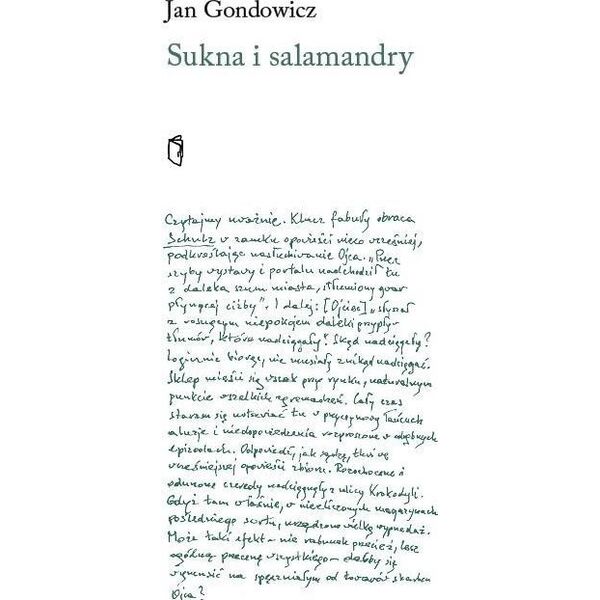 Jan Gondowicz
Sukna i salamandry
Czytajmy uważnie. Klucz fabuły obraca
Schulz w zamku opowieści nieco wcześniej,
podkreślając nasłuchiwanie Ojca. „Przez
szyby wystawy i portalu nadchodził tu
z daleka szum miasta, stłumiony gwar
płynącej ciżby”. I dalej: [Ojciec] „słyszał
z rosnącym niepokojem daleki przypływ
tłumów, które nadciągały”. Skąd nadciągały?
Logicznie biorąc, nie musiały znikąd nadciągać.
Sklep mieści się wszak przy rynku, naturalnym
punkcie wszelkich zgromadzeń. Cały czas
staram się wstawiać tu w przyczynowy łańcuch
aluzje i niedopowiedzenia rozproszone w odrębnych
epizodach. Odpowiedź, jak sądzę, tkwi we
wcześniejszej opowieści zbioru. Rozochocone i
odurzone czeredy nadciągnęły z ulicy Krokodyli.
Gdyż tam właśnie, w niezliczonych magazynach
pośledniego sortu, urządzono wielką wyprzedaż.
Może taki efekt – nie rabunek przecież, lecz
ogólną przecenę wszystkiego – dałoby się
wymusić na spęczniałym od towarów skarbcu
Ojca?